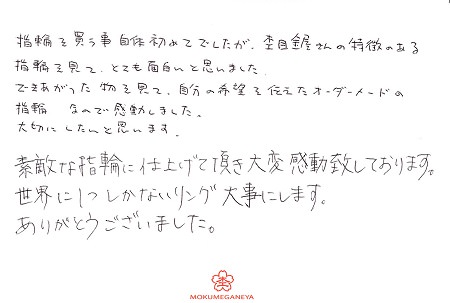 指輪を買う事自体初めてでしたが、杢目金屋さんの特徴のある
指輪を見て、とても面白いと思いました。
できあがった物を見て、自分の希望を伝えたオーダーメードの
指輪 なので感動しました。
大切にしたいと思います。
素敵な指輪に仕上げて頂き大変感動致しております。
世界に1つしかないリング大事にします。
ありがとうございました。
MOKUMEGANEYA